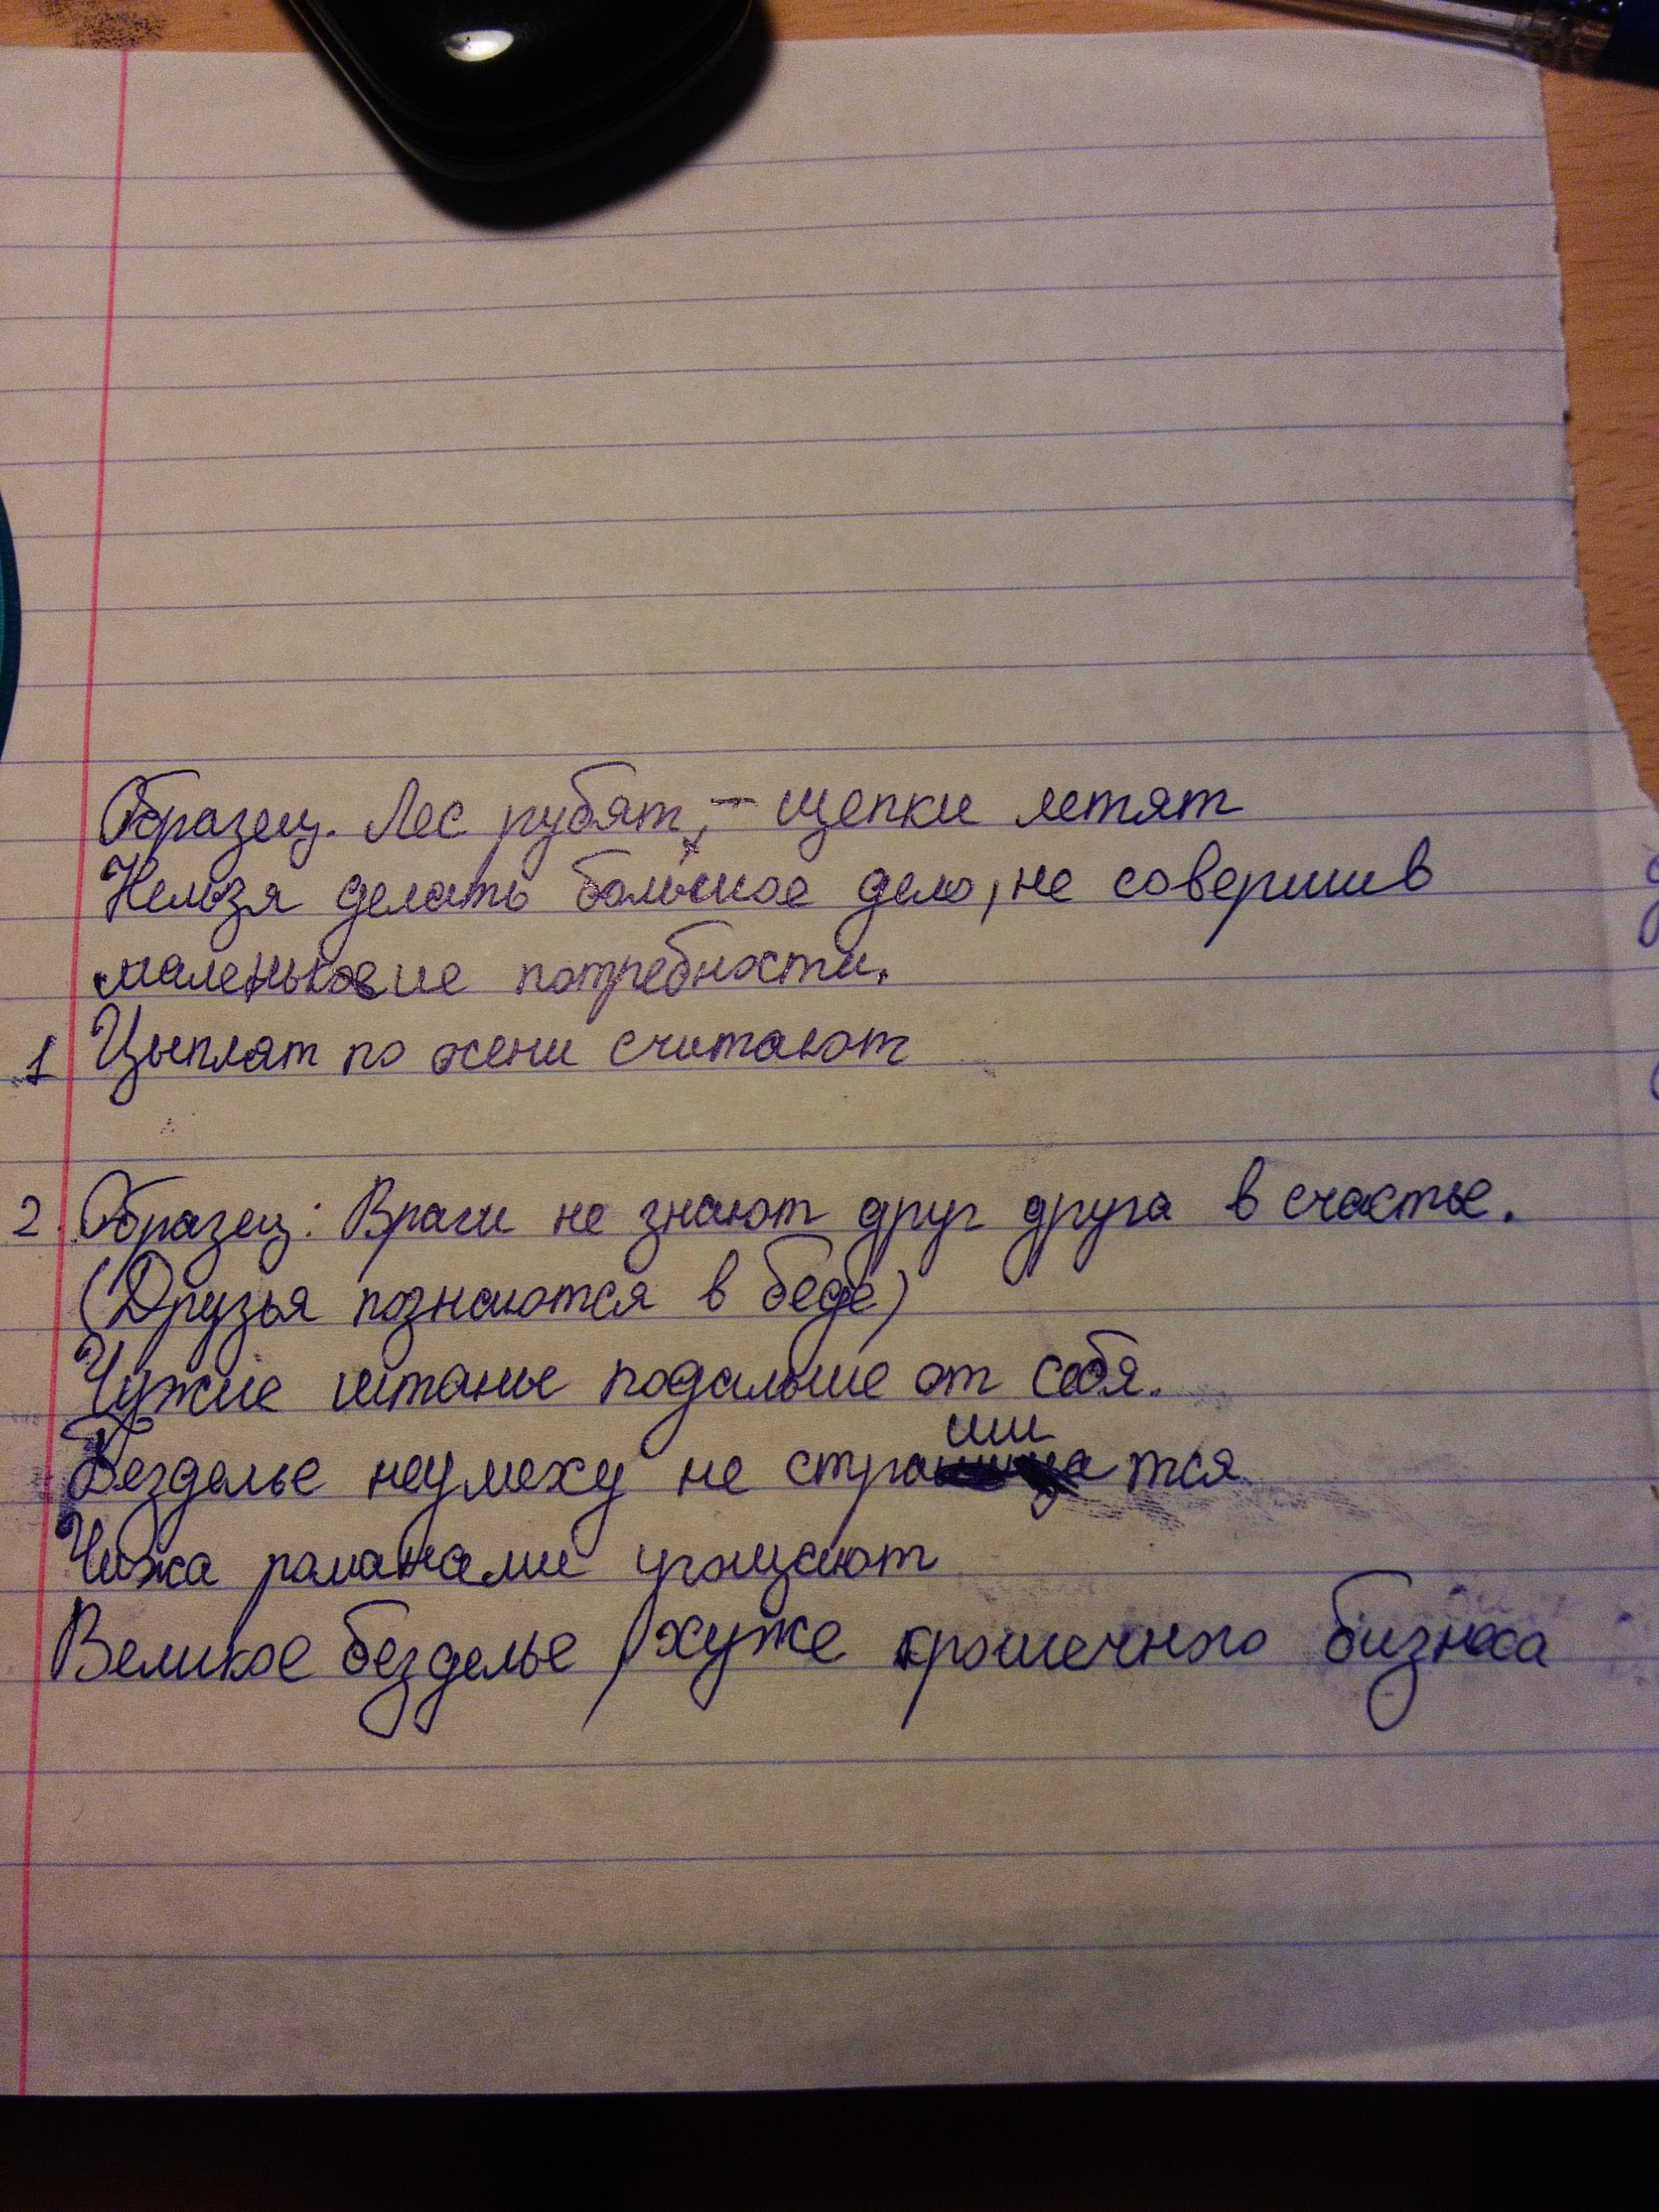 Образец. Лес рубят, - щепки летят
Нельзя делать большое дело, не совершив
маленькие потребности.
1 Цыплят по осени считают
2. Образец: Враги не знают друг друга в счастье.
(Друзья познаются в беде)
Чужие штаны подальше от себя.
Безделье неумеху не страшится
Чижа романами угощают
Великое безделье, хуже крошечного бизнеса